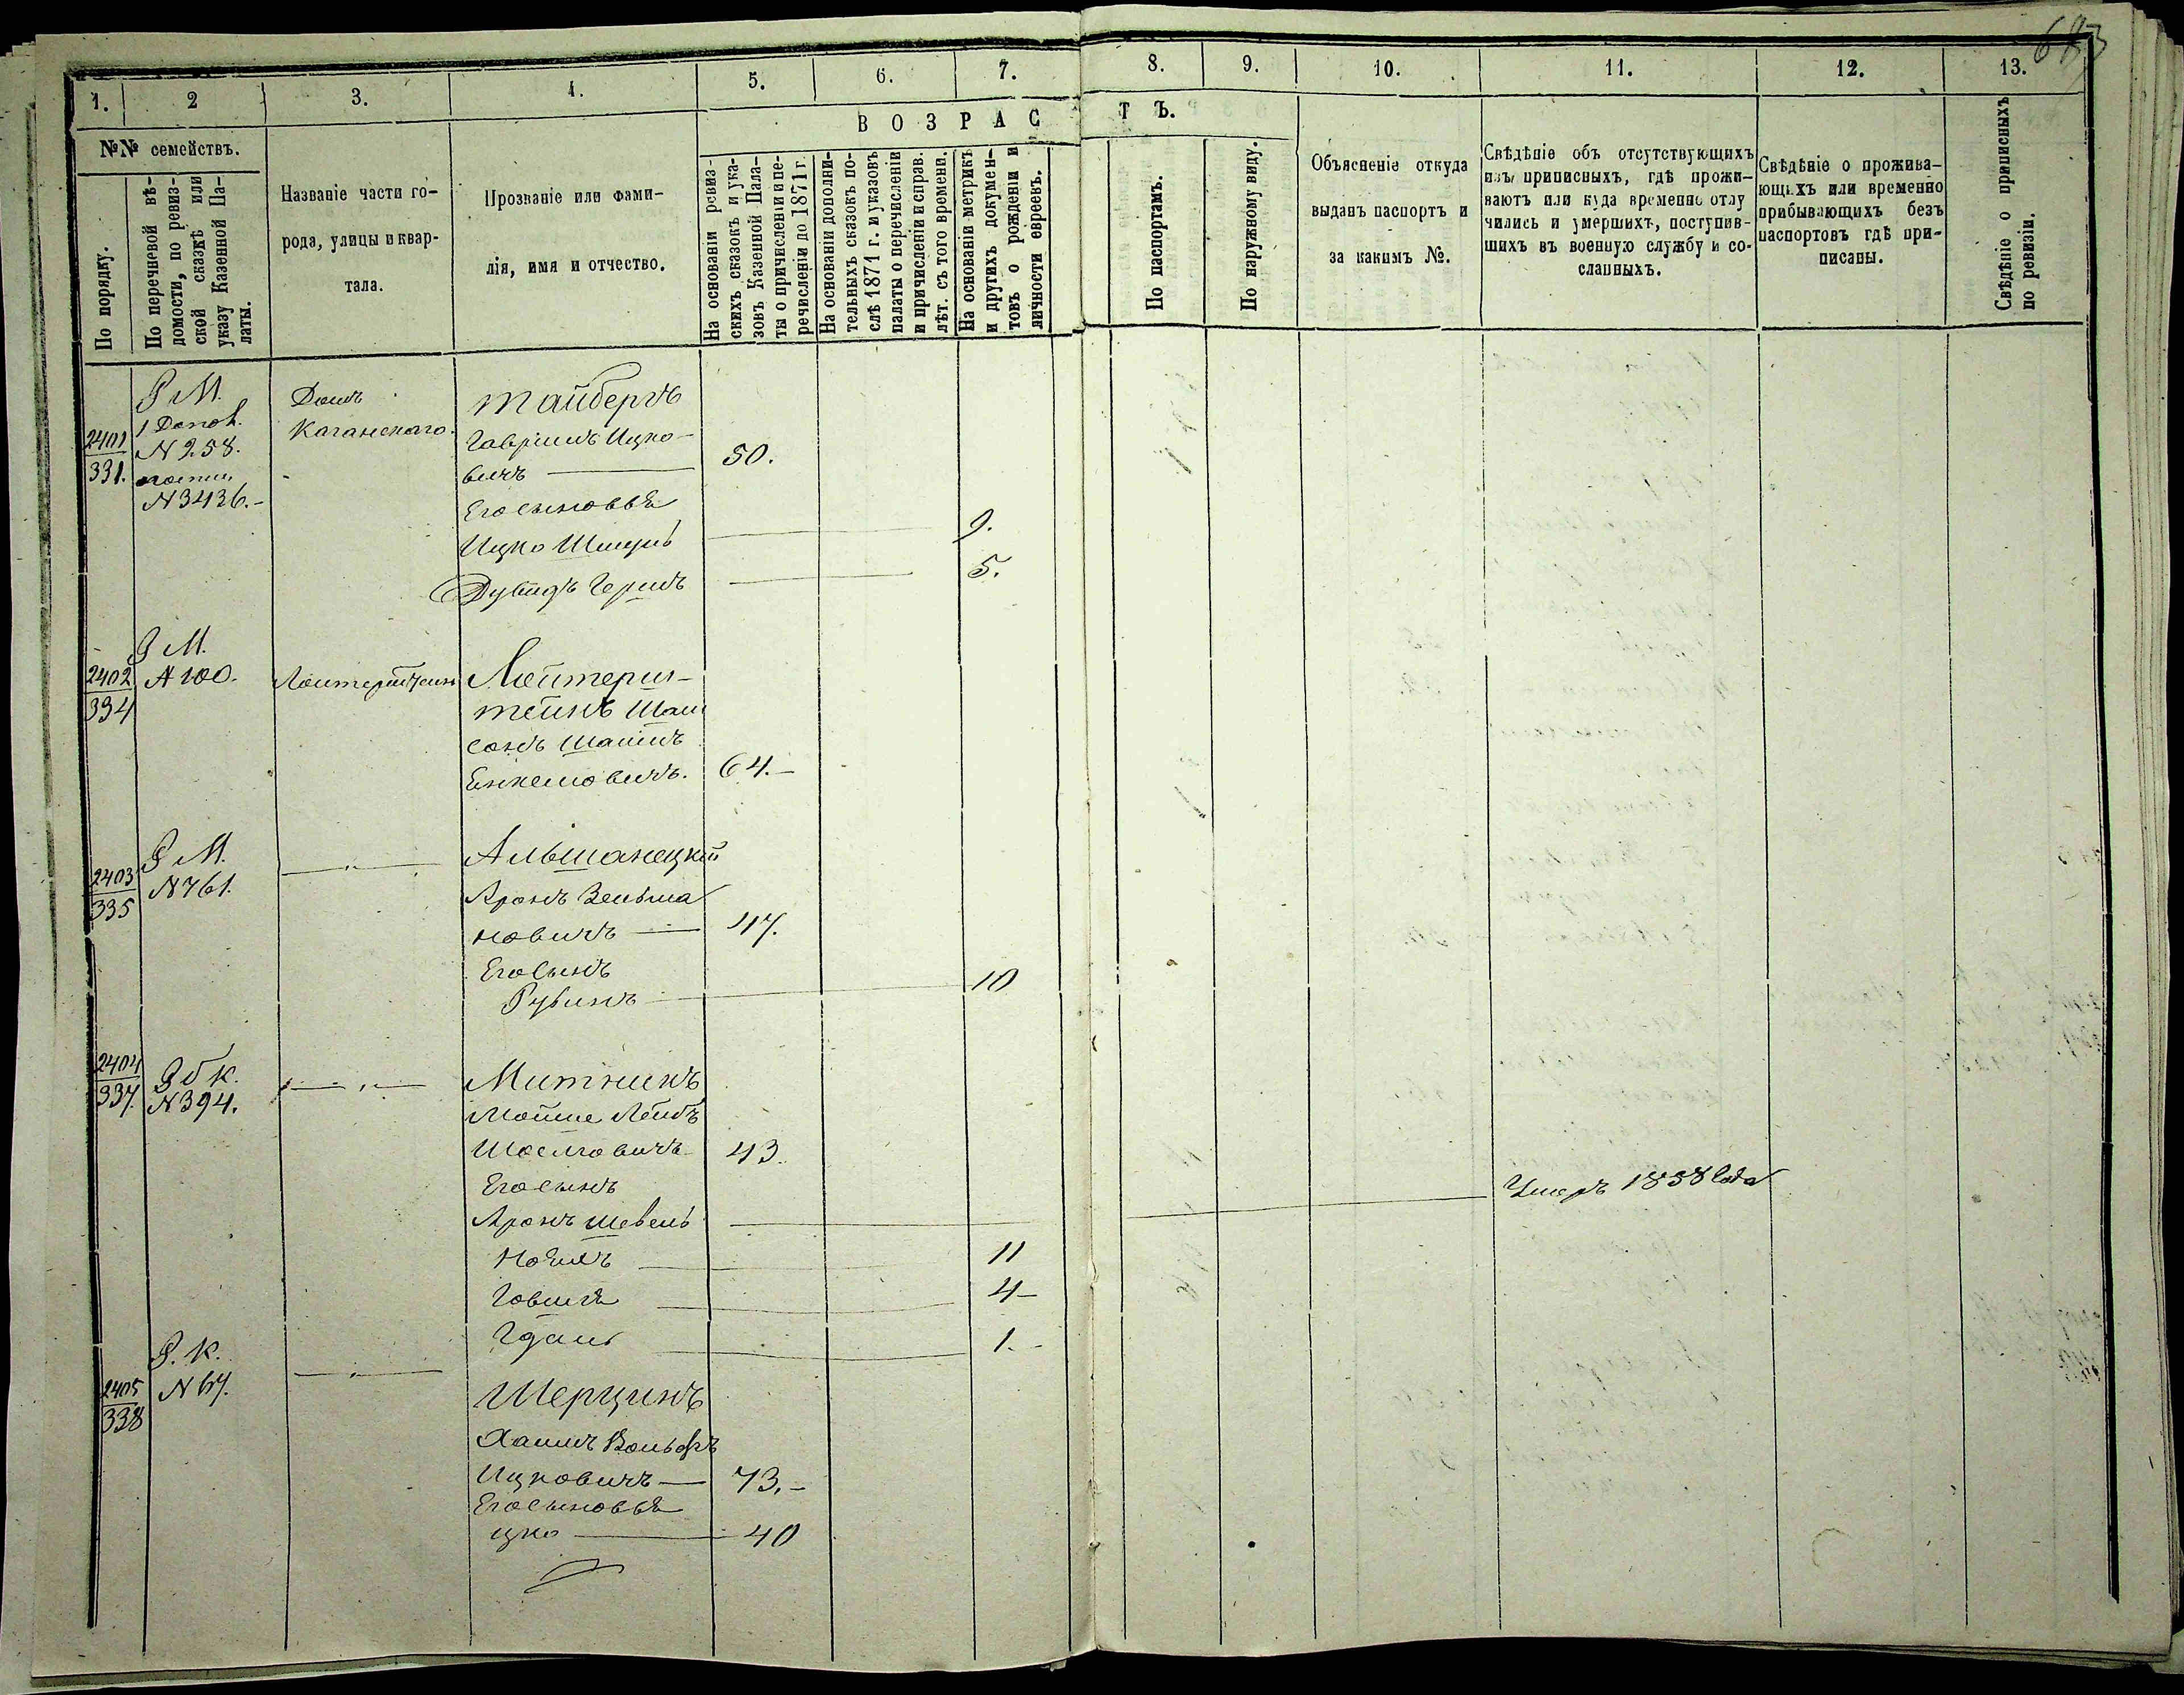 683
1.
2
3.
4.
5.
6.
7.
8.
9.
10.
11.
12.
13.
В О З Р А С Т Ъ.
№№ семействъ.
По порядку.
По перечневой вѣ-
домости, по ревиз-
ской сказкѣ или
указу Казенной Па-
латы.
Названіе части го-
рода, улицы и квар-
тала.
Прозваніе или фами-
лія, имя и отчество.
На основаніи ревиз-
скихъ сказокъ и ука-
зовъ Казенной Пала-
ты о причисленіи и пе-
речисленіи до 1871 г.
На основаніи дополни-
тельныхъ сказокъ по-
слѣ 1871 г. и указовъ
палаты о перечисленіи
и причисленіи и справ.
лѣт. съ того времени.
На основаніи метрикъ
и другихъ докумен-
товъ о рожденіи и
личности евреевъ.
По паспортамъ.
По наружному виду.
Объясненіе откуда
выданъ паспортъ и
за какимъ №.
Свѣдѣніе объ отсутствующихъ
изъ приписныхъ, гдѣ прожи-
ваютъ или куда временно отлу
чились и умершихъ, поступив-
шихъ въ военную службу и со-
сланныхъ.
Свѣдѣніе о прожива-
ющихъ или временно
прибывающихъ безъ
паспортовъ гдѣ при-
писаны.
Свѣдѣніе о приписныхъ
по ревизіи.
2401
331.
Р М.
1 Допол.
N 258.
N 3436.-
Домъ
Каганскаго.
Тайбергъ
Гавріилъ Ицко-
вичъ 50.
Его сыновья
Ицко Шмуль 9.
Дувидъ Гершъ 5.
2402
334
Р М.
N 100.
Лойтерштейн
Лойтерш-
тейнъ Шам
сонъ Шаимъ
Енкелевичъ. 64.-
2403
335
Р М.
N 761.
— " —
Альшанецкій
Аронъ Зельма
новичъ 47.
Его сынъ
Рубинъ 10
2404
337.
Р б К.
N 394.
— " —
Митникъ
Мойше Лейбъ
Шоелговичъ 43.
Его сынъ
Аронъ Шевель Умеръ 1858 Года
Нойхъ 11
Говшія 4-
Гдаль 1.-
2405
338
Р. К.
N 67.
— " —
Шерцинъ
Хаимъ Вольфъ
Ицковичъ 73.-
Его сыновья
цко 40